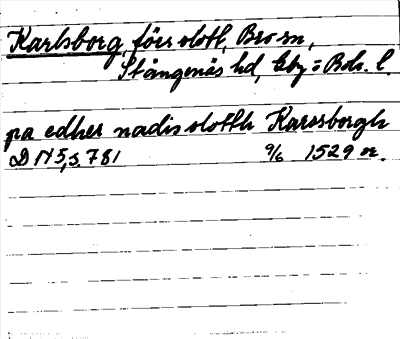 Karlsborg, förr slott, Bro sn,
Stångenäs hd, Gby o Boh. l.
pa edher nadis slotth Karssborgh
DN 5, s. 781 9/6 1529 or.